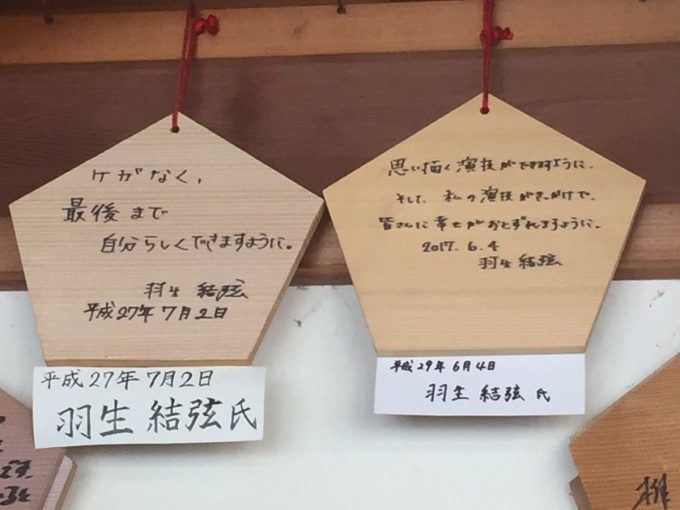 ケガなく、
最後まで
自分らしくできますように。
羽生 結弦
平成27年7月2日
平成27年7月2日
羽生 結弦氏
思い描く演技ができますように。
そして、私の演技がきっかけで、
皆さんに幸せがおとずれますように。
2017.6.4
羽生 結弦
平成29年6月4日
羽生 結弦 氏